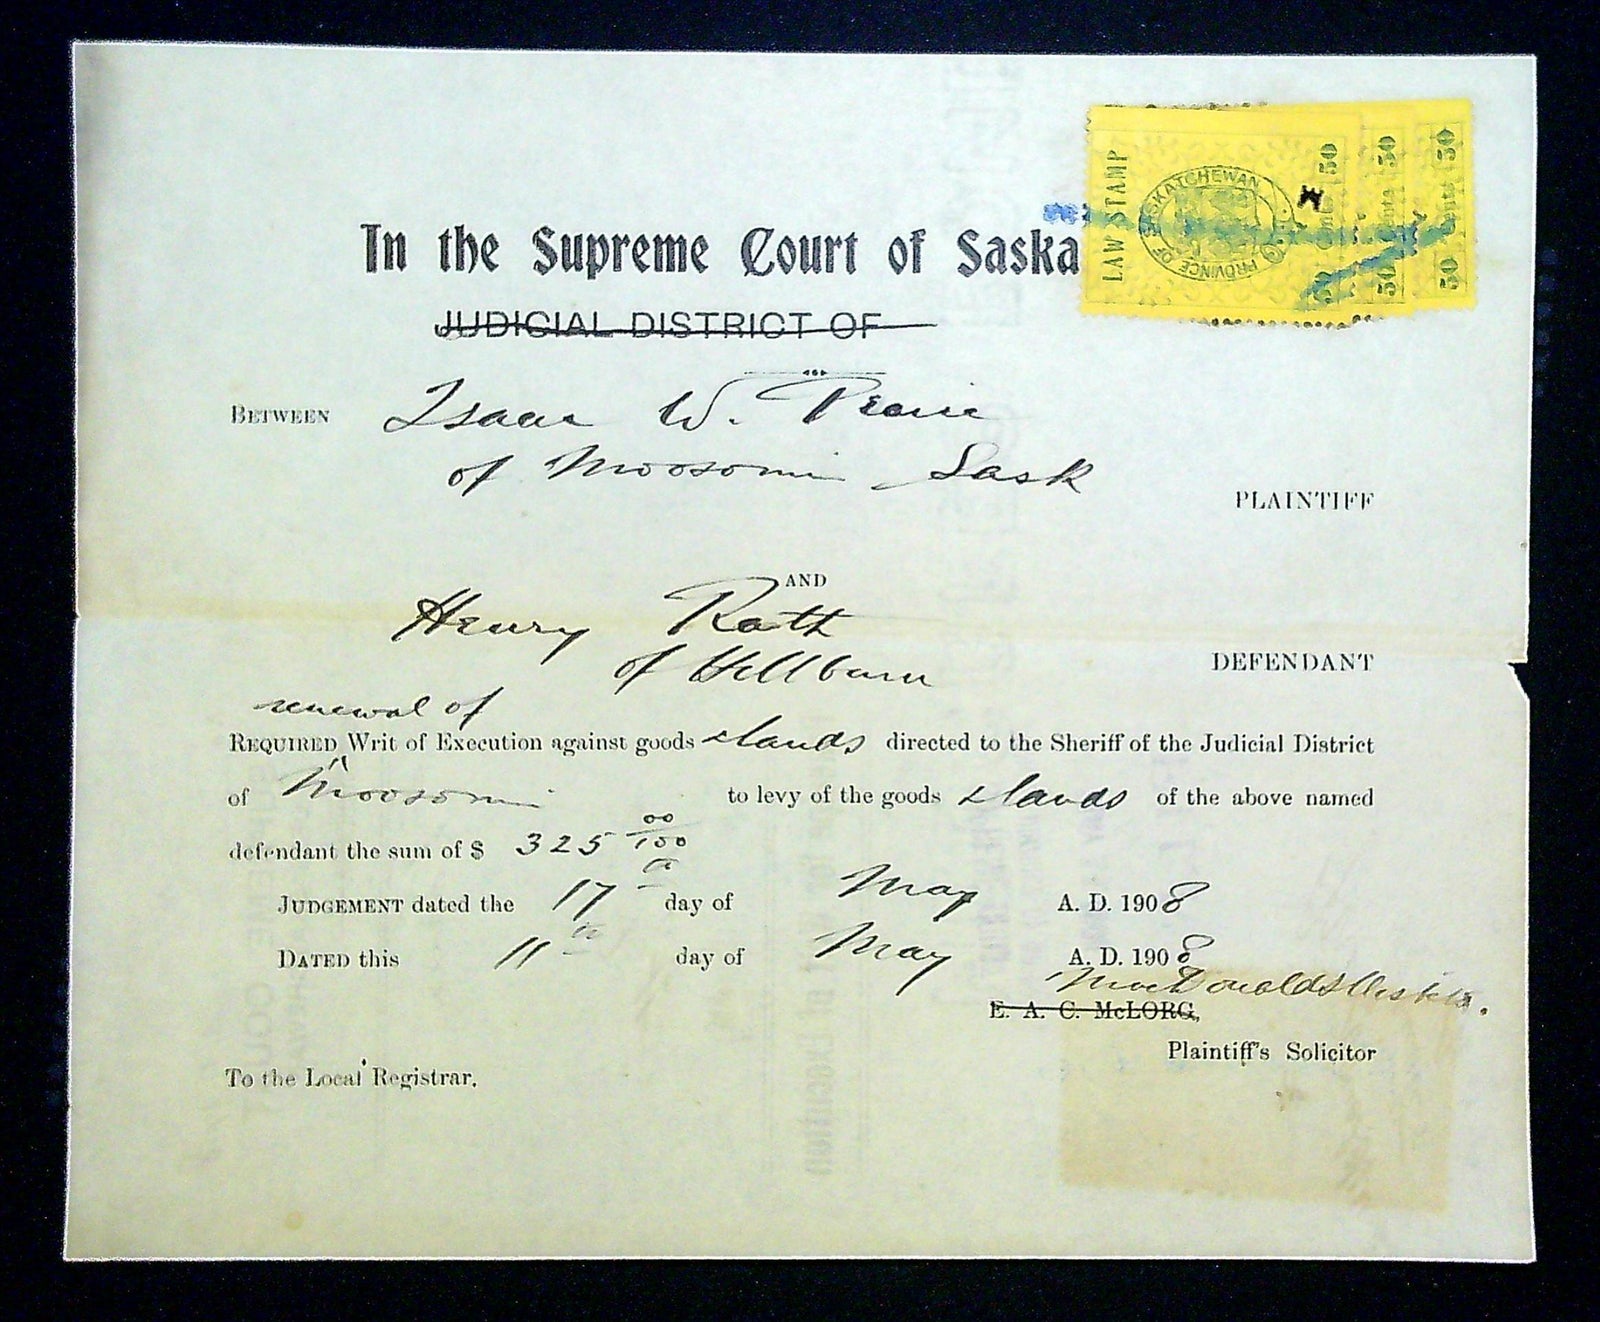 LAW STAMP
PROVINCE OF SASKATCHEWAN
50 Cents 50
50 Cents 50
50 Cents 50
In the Supreme Court of Saska
JUDICIAL DISTRICT OF
BETWEEN Isaac W.
of Moosomin Sask
PLAINTIFF
AND
Henry Rath
of Hillburn
DEFENDANT
renewal of
REQUIRED Writ of Execution against goods & lands directed to the Sheriff of the Judicial District
of Moosomin to levy of the goods & lands of the above named
defendant the sum of $ 325 00/100
JUDGEMENT dated the 17th day of May A. D. 1908
DATED this 11th day of May A. D. 1908
MacDonald &
E. A. C. McLORG,
Plaintiff's Solicitor
To the Local Registrar.